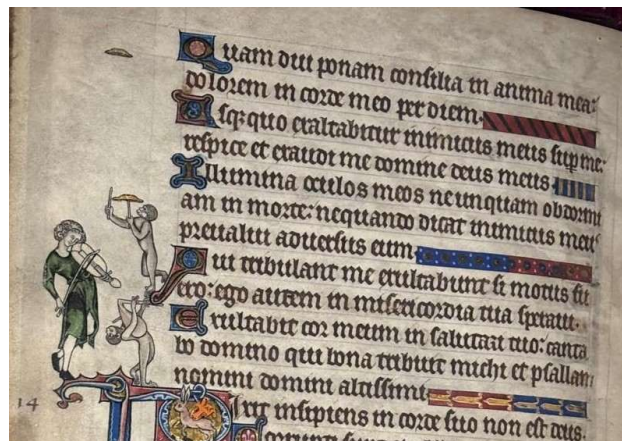 Quam diu ponam consilia in anima mea:
dolorem in corde meo per diem.
Usq;quo exaltabitur inimicus meus sup me:
respice et exaudi me domine deus meus
Illumina oculos meos ne unquam obdormi
am in morte: nequando dicat inimicus meus
preualui aduersus eum
Qui tribulant me exultabunt si motus fu
ero: ego autem in misericordia tua speraui.
Exultabit cor meum in salutari tuo: canta
bo domino qui bona tribuit michi et psallam
nomini domini altissimi
14
Dixit insipiens in corde suo non est deus.